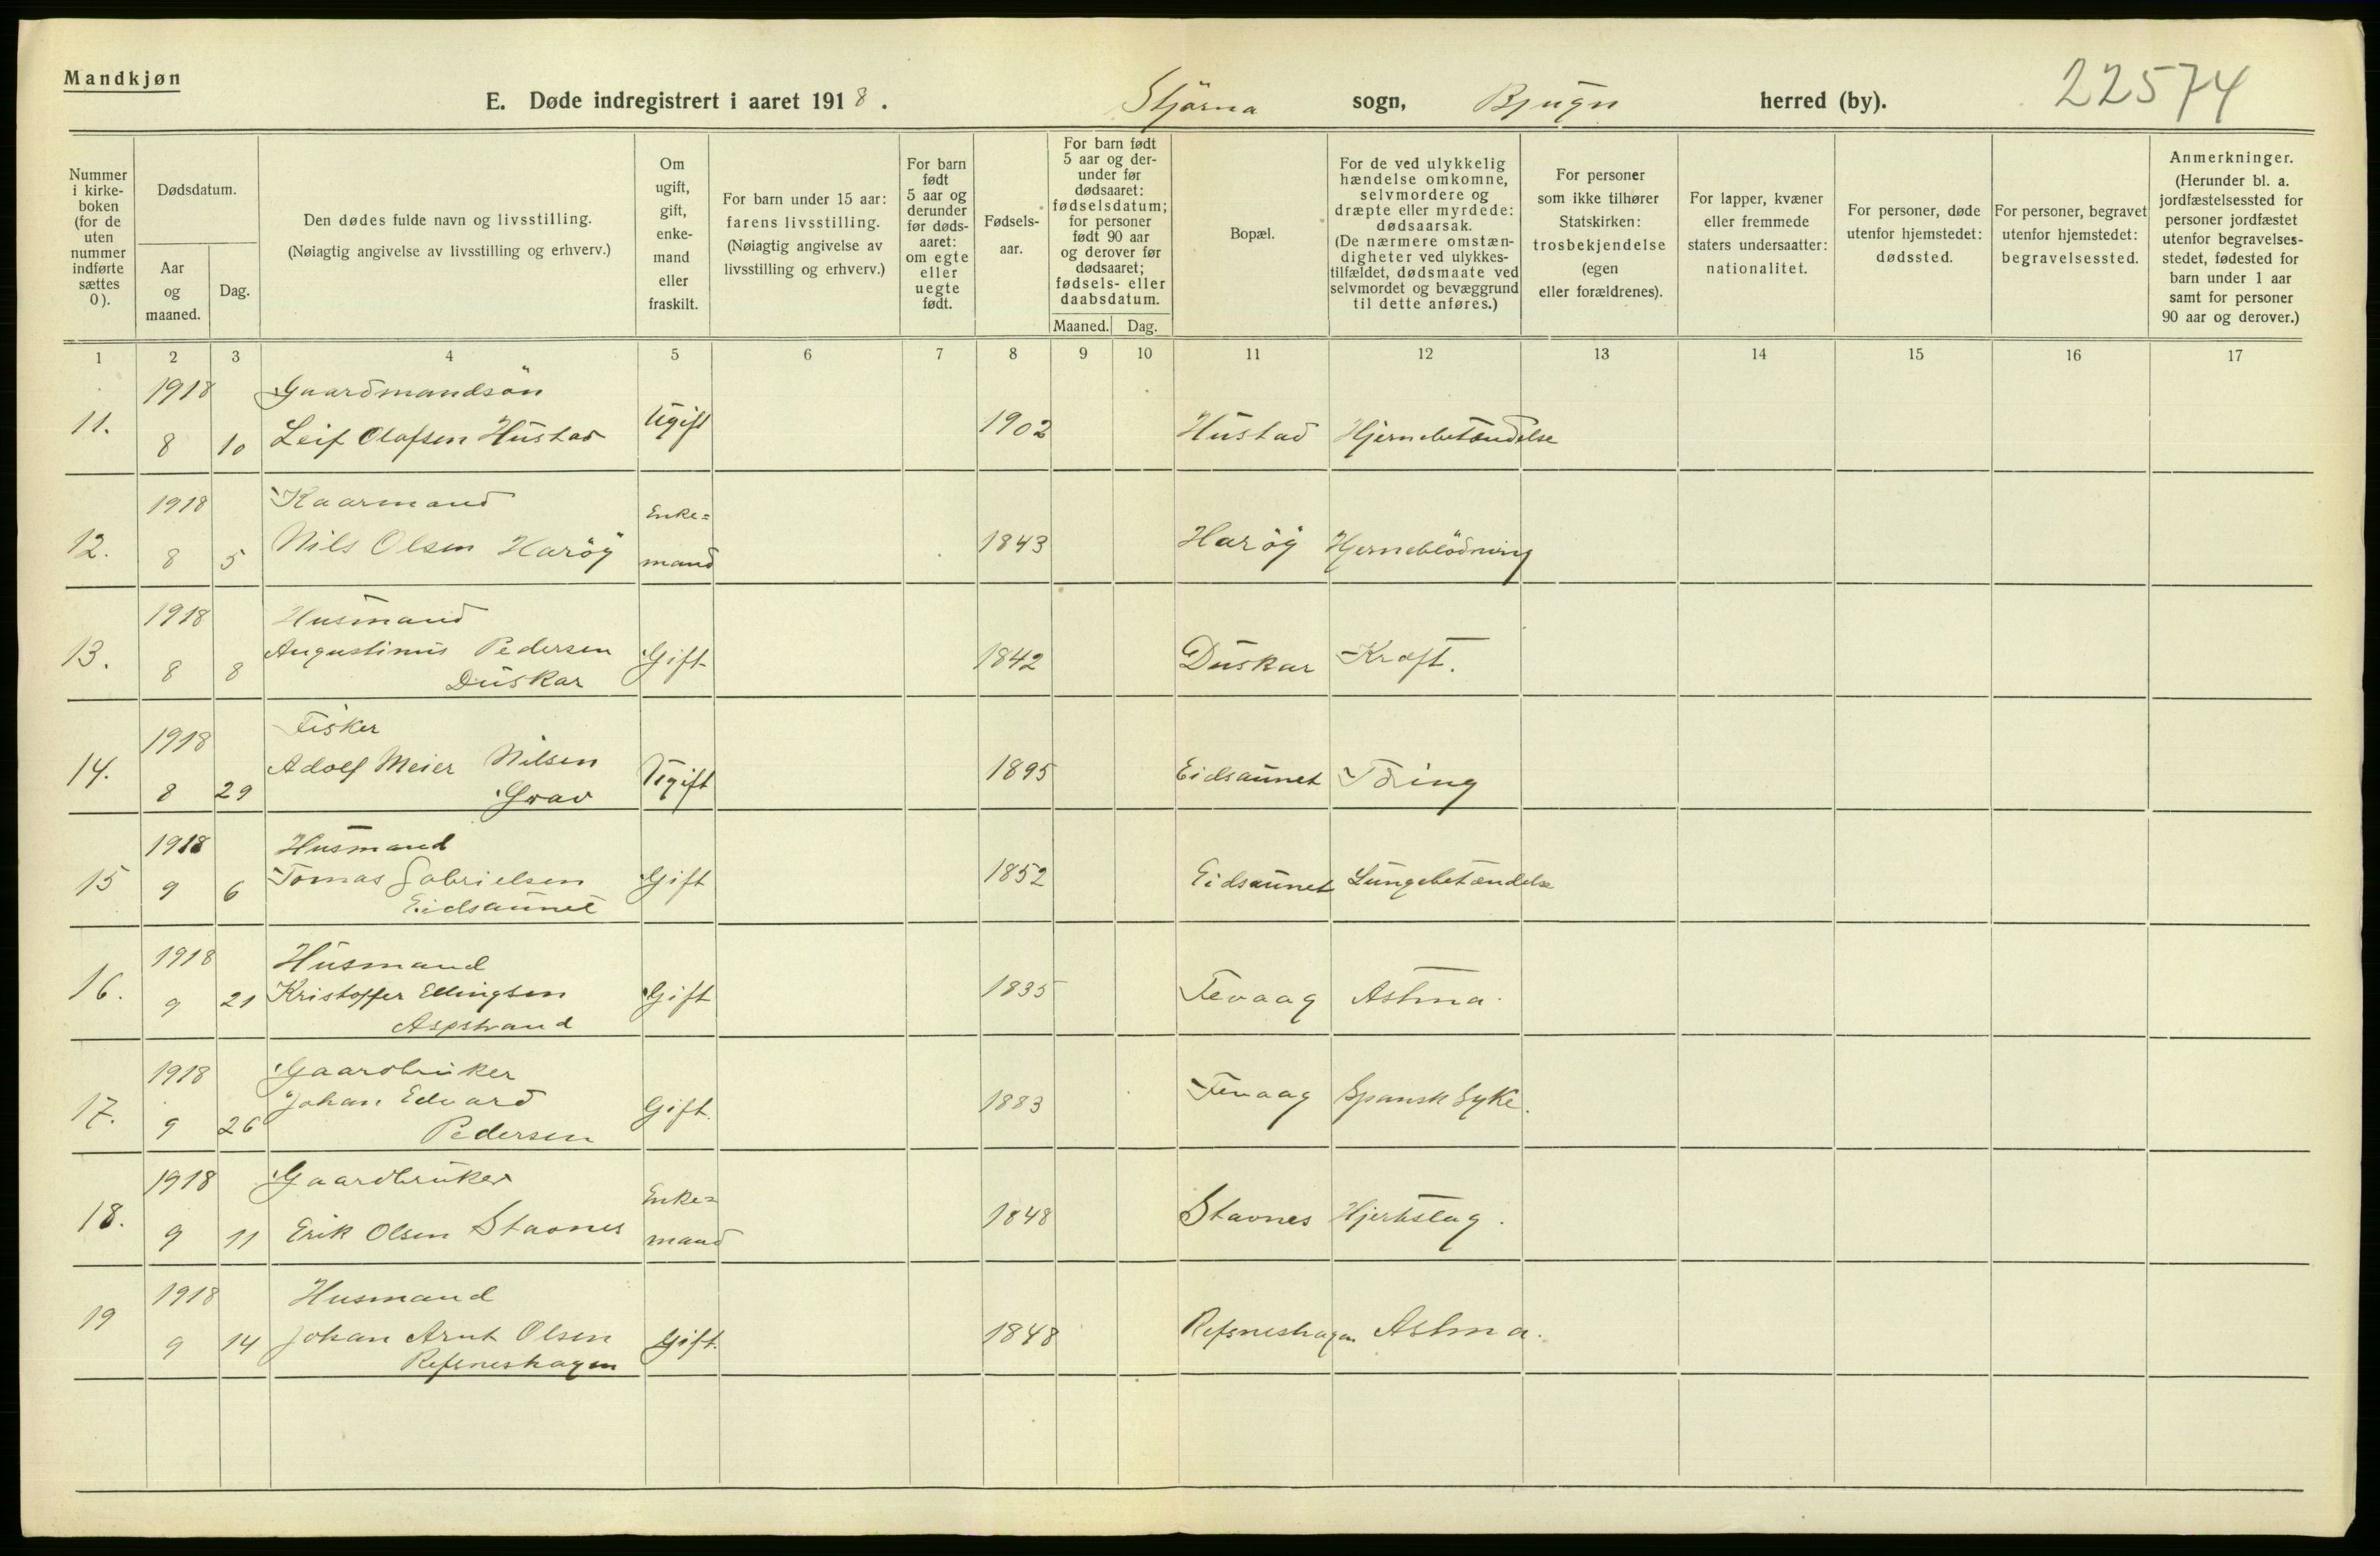 Mandkjøn
E. Døde indregistrert i aaret 1918. Stjørna sogn, Bjugn herred (by). 22574
Nummer i kirke-boken (for de uten nummer indførte sættes 0).
Dødsdatum.
Aar og maaned.
Dag.
Den dødes fulde navn og livsstilling.
(Nøiagtig angivelse av livsstilling og erhverv.)
Om ugift, gift, enke-mand eller fraskilt.
For barn under 15 aar: farens livsstilling.
(Nøiagtig angivelse av livsstilling og erhverv.)
For barn født 5 aar og derunder før døds-aaret: om egte eller uegte født.
Fødsels-aar.
For barn født 5 aar og der-under før dødsaaret: fødselsdatum; for personer født 90 aar og derover før dødsaaret; fødsels- eller daabsdatum.
Maaned. Dag.
Bopæl.
For de ved ulykkelig hændelse omkomne, selvmordere og dræpte eller myrdede: dødsaarsak.
(De nærmere omstæn-digheter ved ulykkes-tilfældet, dødsmaate ved selvmordet og bevæggrund til dette anføres.)
For personer som ikke tilhører Statskirken: trosbekjendelse (egen eller forældrenes).
For lapper, kvæner eller fremmede staters undersaatter: nationalitet.
For personer, døde utenfor hjemstedet: dødssted.
For personer, begravet utenfor hjemstedet: begravelsessted.
Anmerkninger.
(Herunder bl. a. jordfæstelsessted for personer jordfæstet utenfor begravelses-stedet, fødested for barn under 1 aar samt for personer 90 aar og derover.)
1 2 3 4 5 6 7 8 9 10 11 12 13 14 15 16 17
1918 Gaardmandsön
11. 8 10 Leif Olafsen Hustad Ugift 1902 Hustad Hjernebetændelse
1918 Kaarmand Enke=
12. 8 5 Nils Olsen Haröy mand 1843 Haröy Hjerneblödning
1918 Husmand
13. 8 8 Augustinus Pedersen Gift 1842 Duskar Kræft.
Duskar
1918 Fisker
14. 8 29 Adolf Meier Nilsen Ugift 1895 Eidsaunet Tæring
Grav
1918 Husmand
15 9 6 Tomas Gabrielsen Gift 1852 Eidsaunet Lungebetændelse
Eidsaunet
1918 Husmand
16. 9 21 Kristoffer Ellingsen Gift 1835 Fevaag Astma.
Aspstrand
1918 Gaardbruker
17. 9 26 Johan Edvard Gift. 1883 Fevaag Spansk Syke.
Pedersen
1918 Gaardbruker Enke=
18. 9 11 Erik Olsen Stavnes mand 1848 Stavnes Hjerteslag.
1918 Husmand
19 9 14 Johan Arnt Olsen Gift. 1848 Refsneshagen Astma.
Refsneshagen